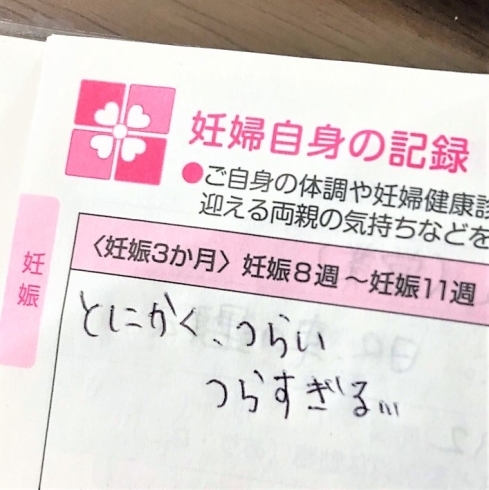 妊婦自身の記録
●ご自身の体調や妊婦健康診
迎える両親の気持ちなどを
妊娠
〈妊娠3か月〉妊娠8週～妊娠11週
とにかく、つらい
つらすぎる...